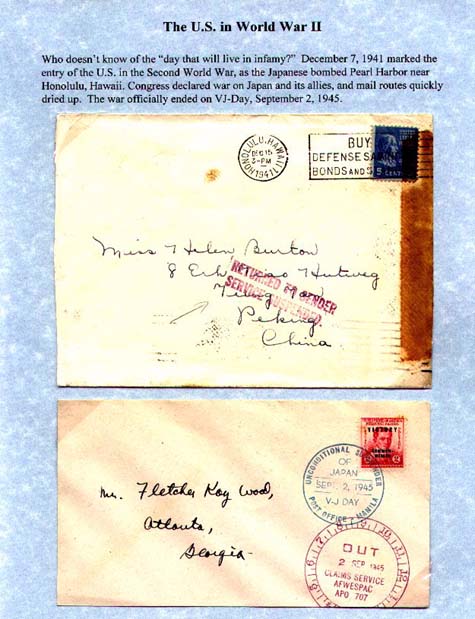 The U.S. in World War II
Who doesn't know of the "day that will live in infamy?" December 7, 1941 marked the
entry of the U.S. in the Second World War, as the Japanese bombed Pearl Harbor near
Honolulu, Hawaii. Congress declared war on Japan and its allies, and mail routes quickly
dried up. The war officially ended on VJ-Day, September 2, 1945.
HONOLULU, HAWAII
DEC 15
3-PM
1941
BUY
DEFENSE
BONDS AND
5 CENT
Miss Helen Burton
8 Erh
RETURNED TO SENDER
SERVICE SUSPENDED
Peking
China.
VICTORY
UNCONDITIONAL SURRENDER
OF
JAPAN
SEPT. 2, 1945
V-J DAY
POST OFFICE MANILA
Mr. Fletcher Kay Wood,
Atlanta,
Georgia.
OUT
2 SEP 1945
CLAIMS SERVICE
AFWESPAC
APO 707